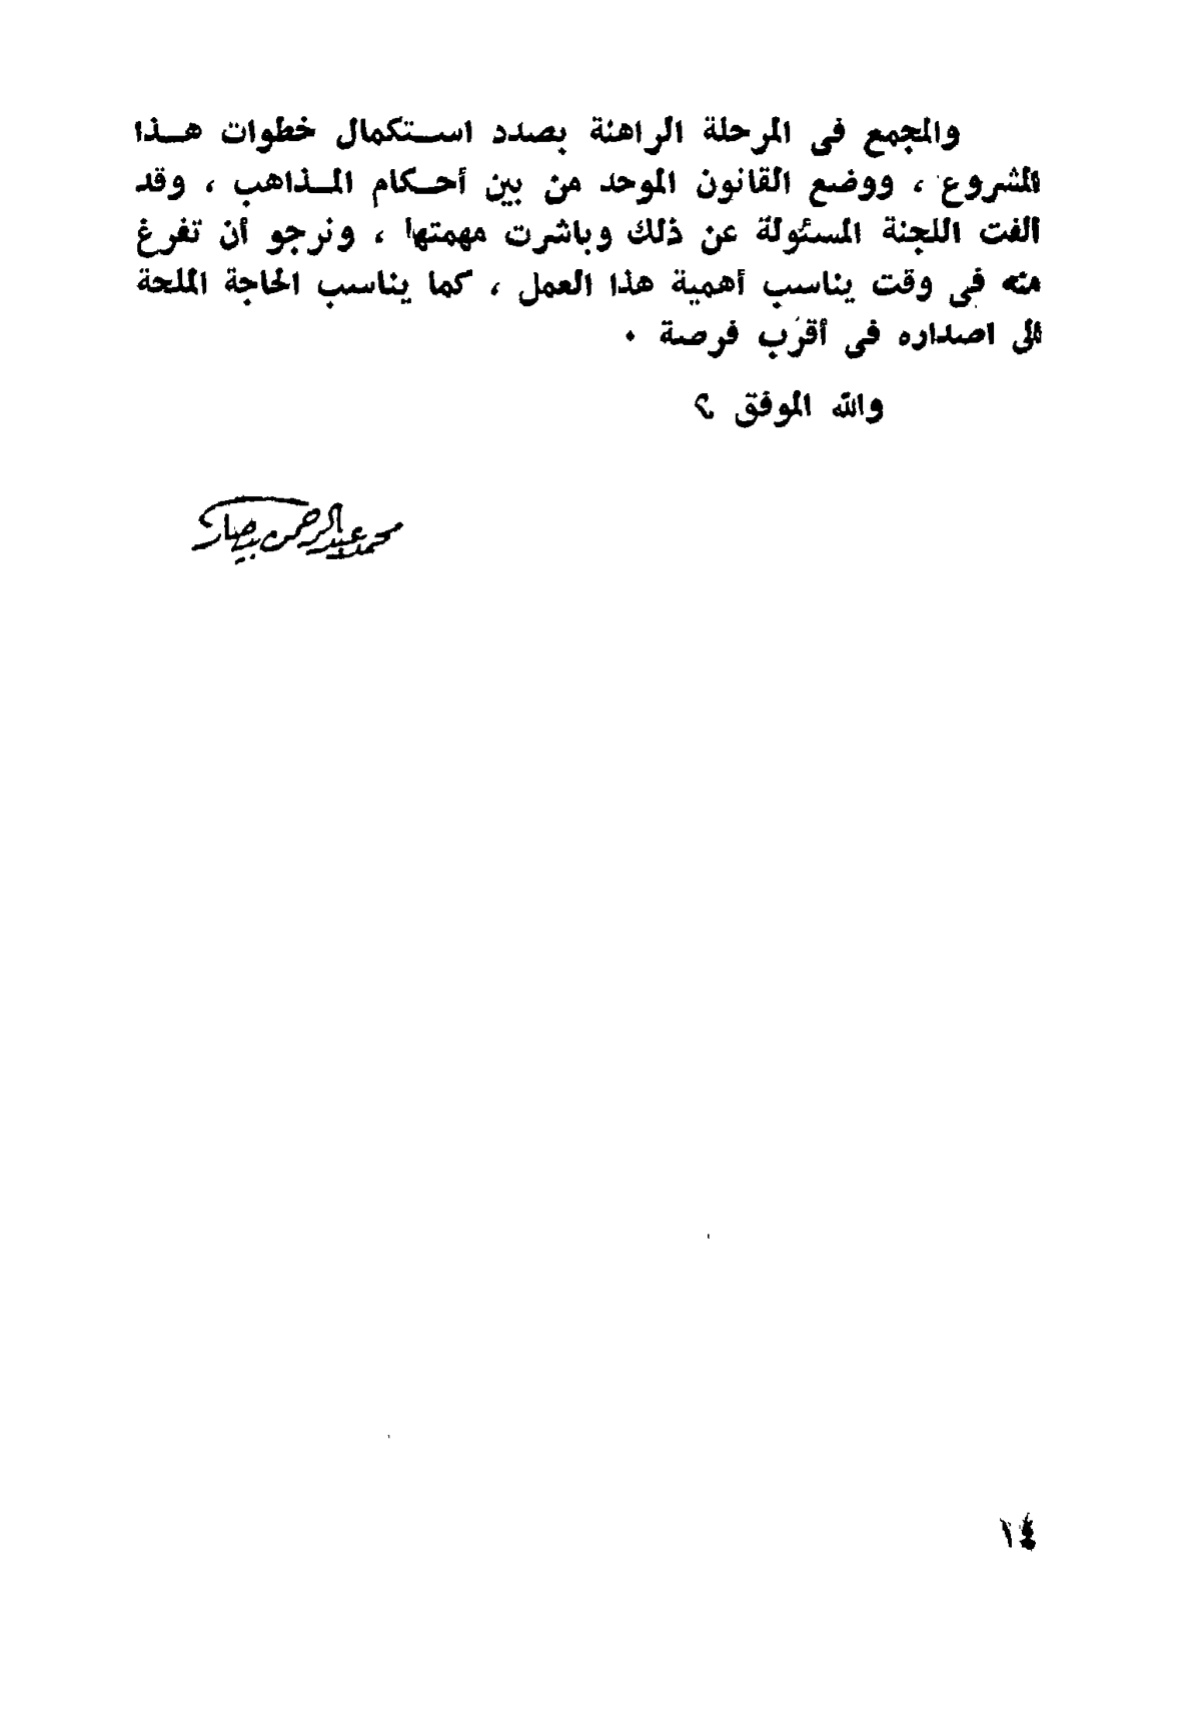 والمجمع فى المرحلة الراهنة بصدد استكمال خطوات هذا
المشروع ، ووضع القانون الموحد من بين أحكام المذاهب ، وقد
الفت اللجنة المسئولة عن ذلك وباشرت مهمتها ، ونرجو أن تفرغ
منه فى وقت يناسب أهمية هذا العمل ، كما يناسب الحاجة الملحة
الى اصداره فى أقرب فرصة .
والله الموفق ؟
محمد عبد الرحمن بيصار
١٤